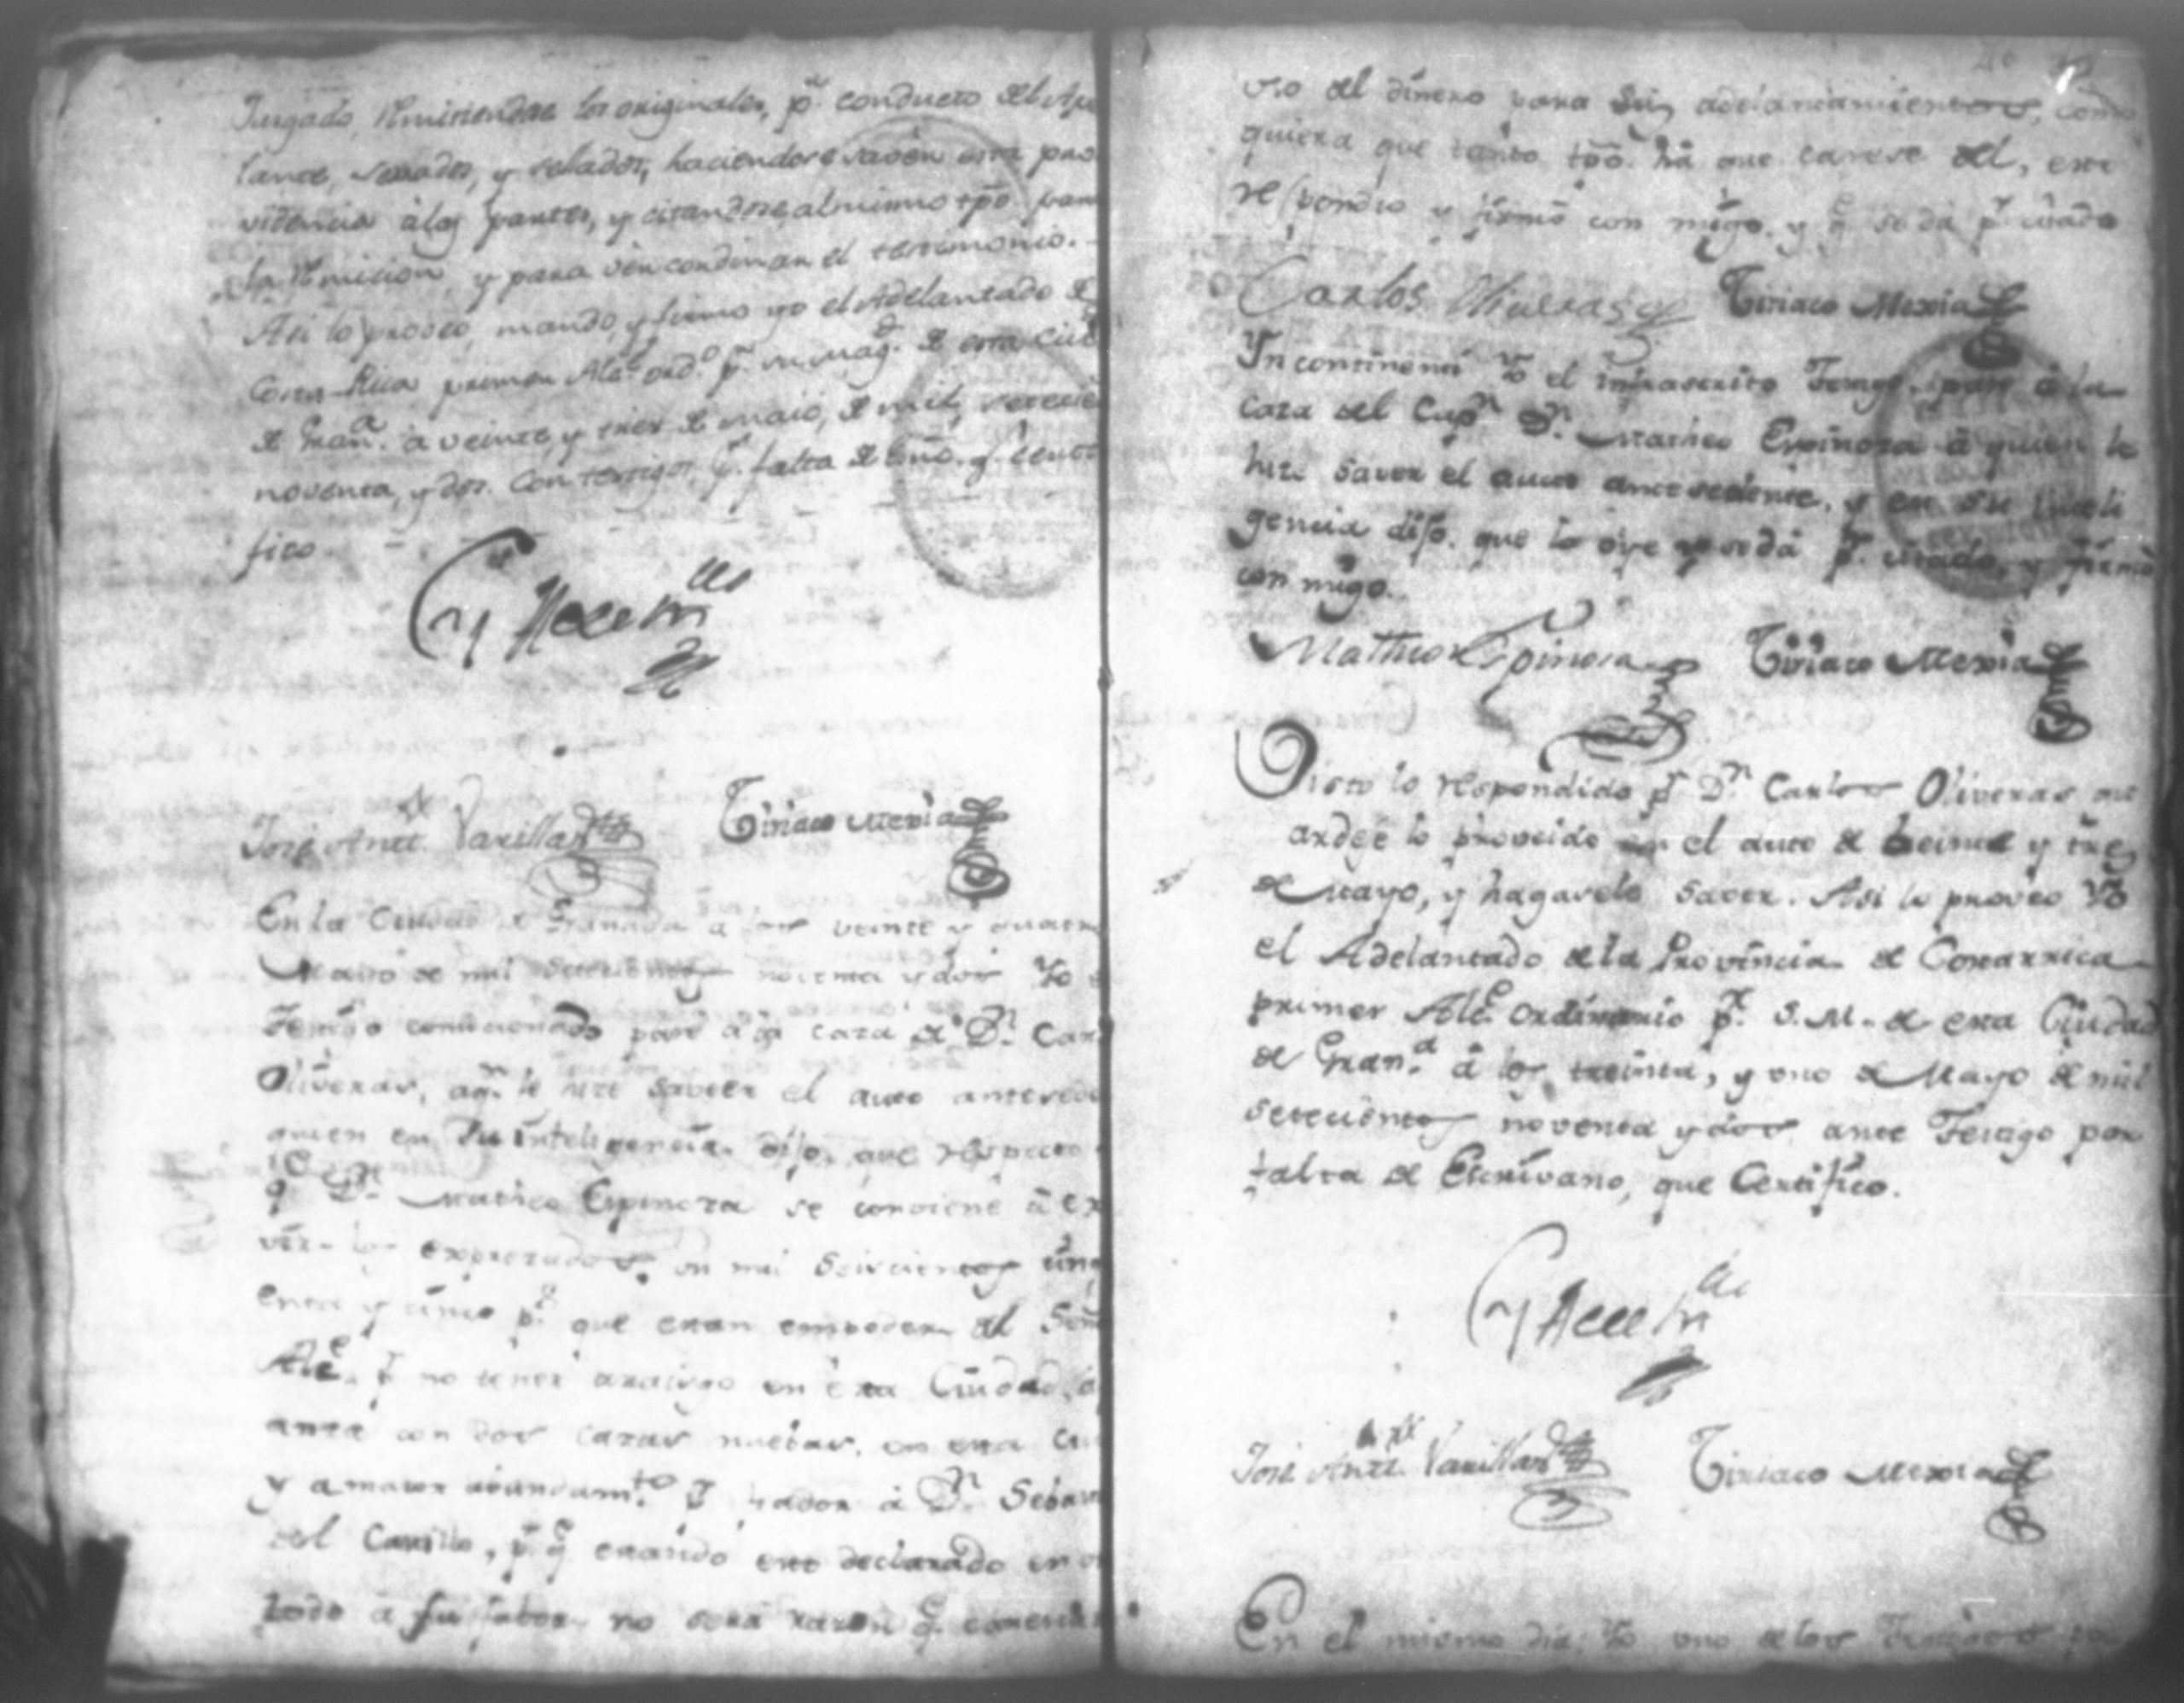 Juzgado, Remitiendose los originales, pr. conducto del Ape
lante, serrados, y sellados, haciendose saver esta pro
videncia á las partes, y citandose, al mismo tpo. para
la Remicion, y para ver condinar el testimonio.
Asi lo proveo, mando, y firmo yo el Adelantado de
Costa-Rica primer Alce. ordo. pr. su Magd. de esta Ciud
de Grana. á veinte, y tres de maio, de mil, setecien
noventa, y dos. Con testigos, pr. falta de Esno. q. certi
fico
José Anto. Varillas Ciriaco Mexia
En la Ciudad de Granada a los veinte y quatro
Maio de mil setecientos noventa y dos Yo
Testigo comicionado pasé á la caza de Dn. Car
Oliveras, aqn. le hize saveer el auto antesed
quien en su inteligencia dijo, que respecto
q Dn. Matheo Espinoza se conviene á ex
ver los expresados un mil seiscientos cinq
enta y cinco ps. que estan empoder del Señ
Alce. pr. no tener arraigo en esta Ciudad, a
anza con dos cazas nuebas, en esta Ciu
y a maior abundamto. pr. fiador á Dn. Sebas
del Castillo, pr. q estando esto declarado en
todo á su fabor no será razon q. caresca
vso del dinero para sus adelantamientos, como
quiera que tanto tpo. há que carese del, esto
respondio y firmó con migo, y q. se dá pr. citado
Carlos Oliveras Ciriaco Mexia
Yn continenti Yo el infrascrito Testigo, pasé á la
caza del Capn. Dn. Matheo Espinoza á quien le
hize saver el auto antesedente, y en su inteli
gencia dijo. que lo oye y se dá pr. citado, y firmó
con migo.
Matheo Espinosa Ciriaco Mexia
Visto lo respondido pr. Dn. Carlos Oliveras gu
ardese lo proveido en el auto de beinte y tres
de Mayo, y hagasele saver. Asi lo proveo Yo
el Adelantado de la Provincia de Costarrica
primer Alce. ordinario pr. S. M. de esta Ciudad
de Grana. á los treinta, y uno de Mayo de mil
setecientos noventa y dos ante Testigo por
falta de Escrivano, que Certifico.
José Anto. Varillas Ciriaco Mexia
En el mismo dia, Yo uno de los Testigos pa